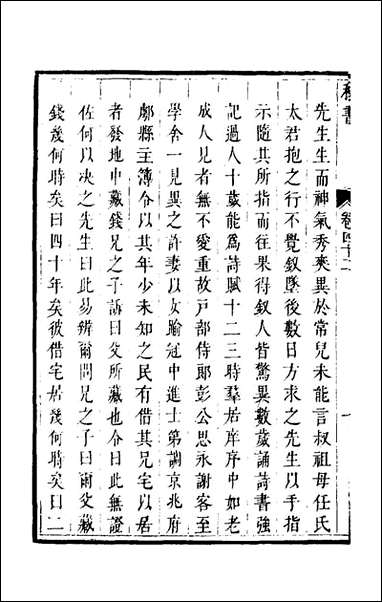 書
卷四十二
一
先生生而神氣秀爽異於常兒未能言叔祖母任氏
太君抱之行不覺釵墜後數日方求之先生以手指
示隨其所指而往果得釵人皆驚異數歲誦詩書強
記過人十歲能爲詩賦十二三時羣居庠序中如老
成人見者無不愛重故戸部侍郎彭公思永謝客至
學舍一見異之許妻以女踰冠中進士第調京兆府
鄠縣主簿令以其年少未知之民有借其兄宅以居
者發地中藏錢兄之子訴曰父所藏也令曰此無證
佐何以决之先生曰此易辨爾問兄之子曰爾父藏
錢幾何時矣曰四十年矣彼借宅居幾何時矣曰二